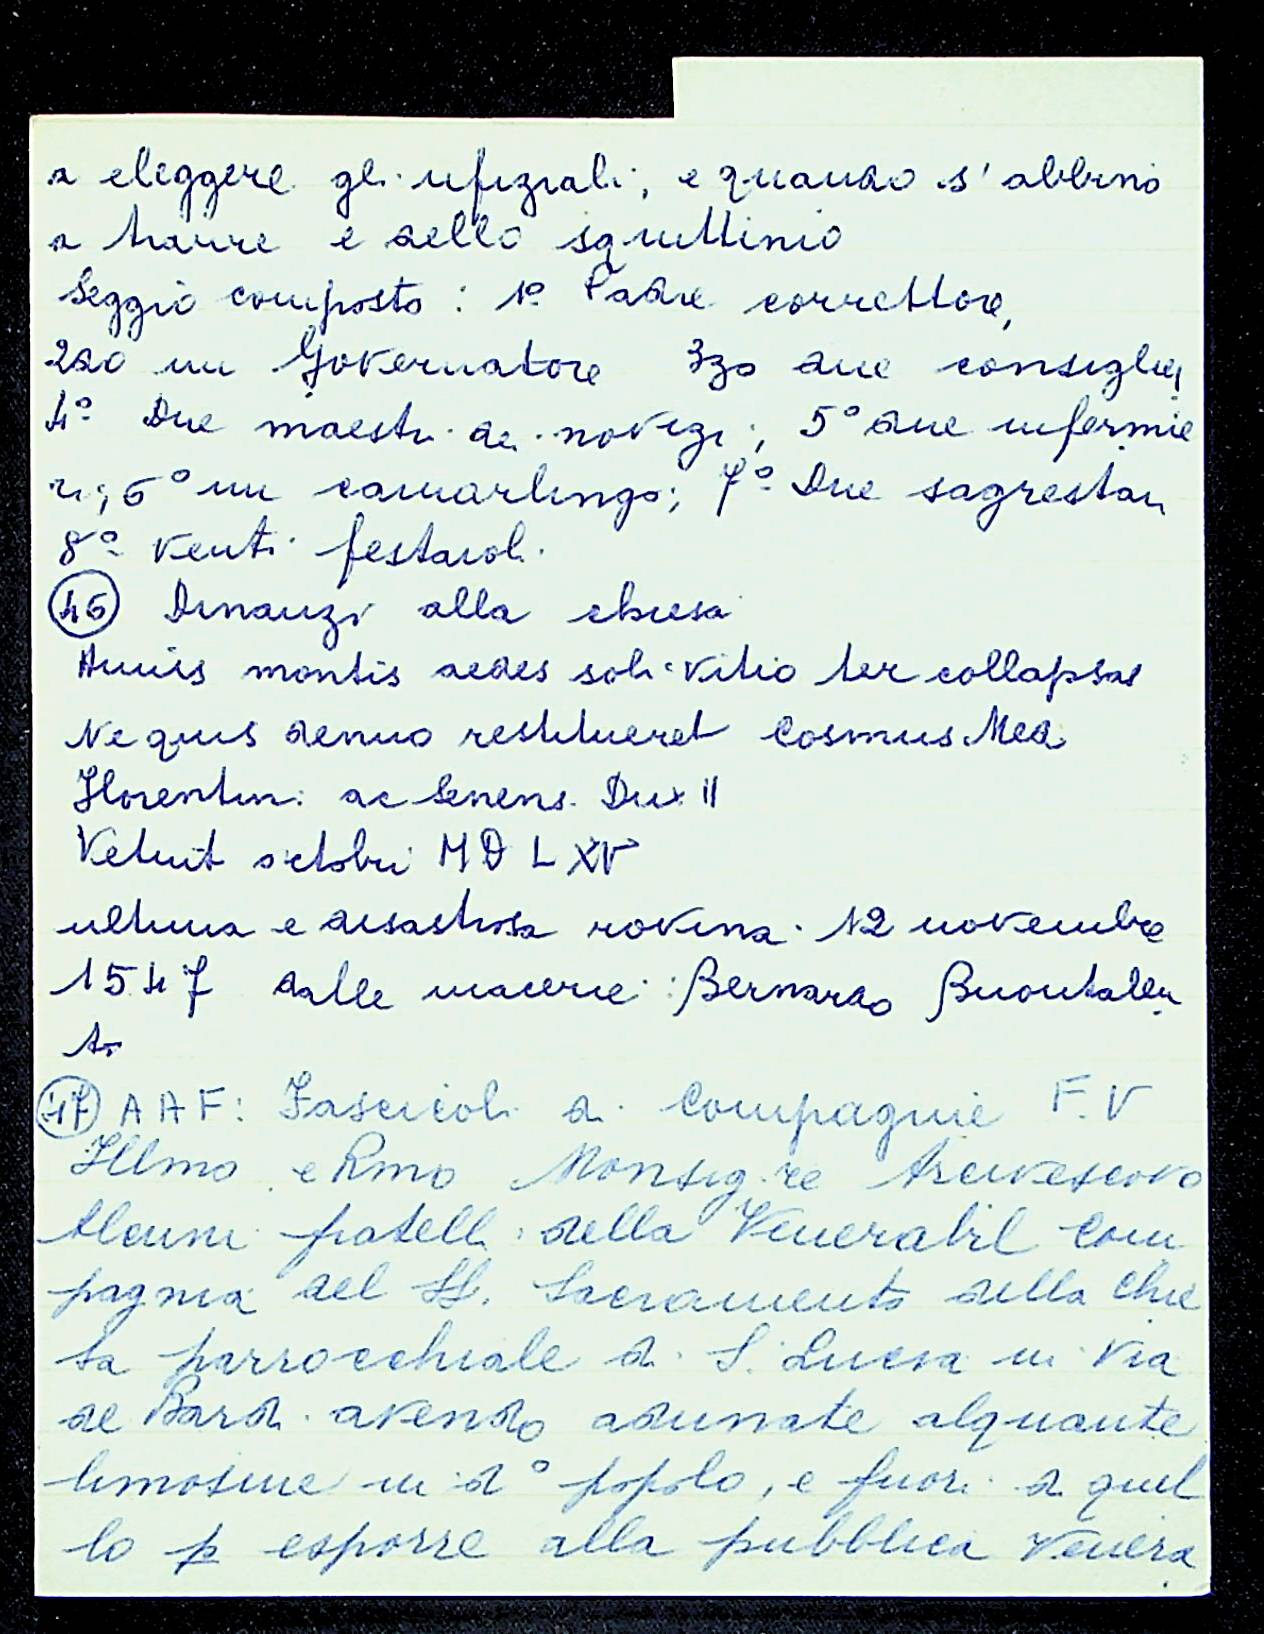 a eleggere gli ufiziali, e quando s'abbino
a trarre e dello squittinio
Seggio composto: 1º Padre correttore,
2do un Governatore 3zo due consiglieri
4º Due maestri dei novizi; 5º due infermie
ri; 6º un camarlingo; 7º Due sagrestani
8º venti festaioli
46 Dinanzi alla chiesa
Huius montis aedes soli vitio ter collapsas
Ne quis denuo restitueret Cosmus Med.
Florentin. ac Senens. Dux II
Vetuit octobri MDLXV
ultima e disastrosa rovina. 12 novembre
1547 dalle macerie: Bernardo Buontalen
ti
47 AAF: Fascicoli di Compagnie F.V
Illmo e Rmo Monsig.re Arcivescovo
Alcuni fratelli della Venerabil Com
pagnia del SS. Sacramento della Chie
sa parrocchiale di S. Lucia in Via
de Bardi avendo adunate alquante
limosine in dº popolo, e fuori di quel
lo p esporre alla pubblica Venera